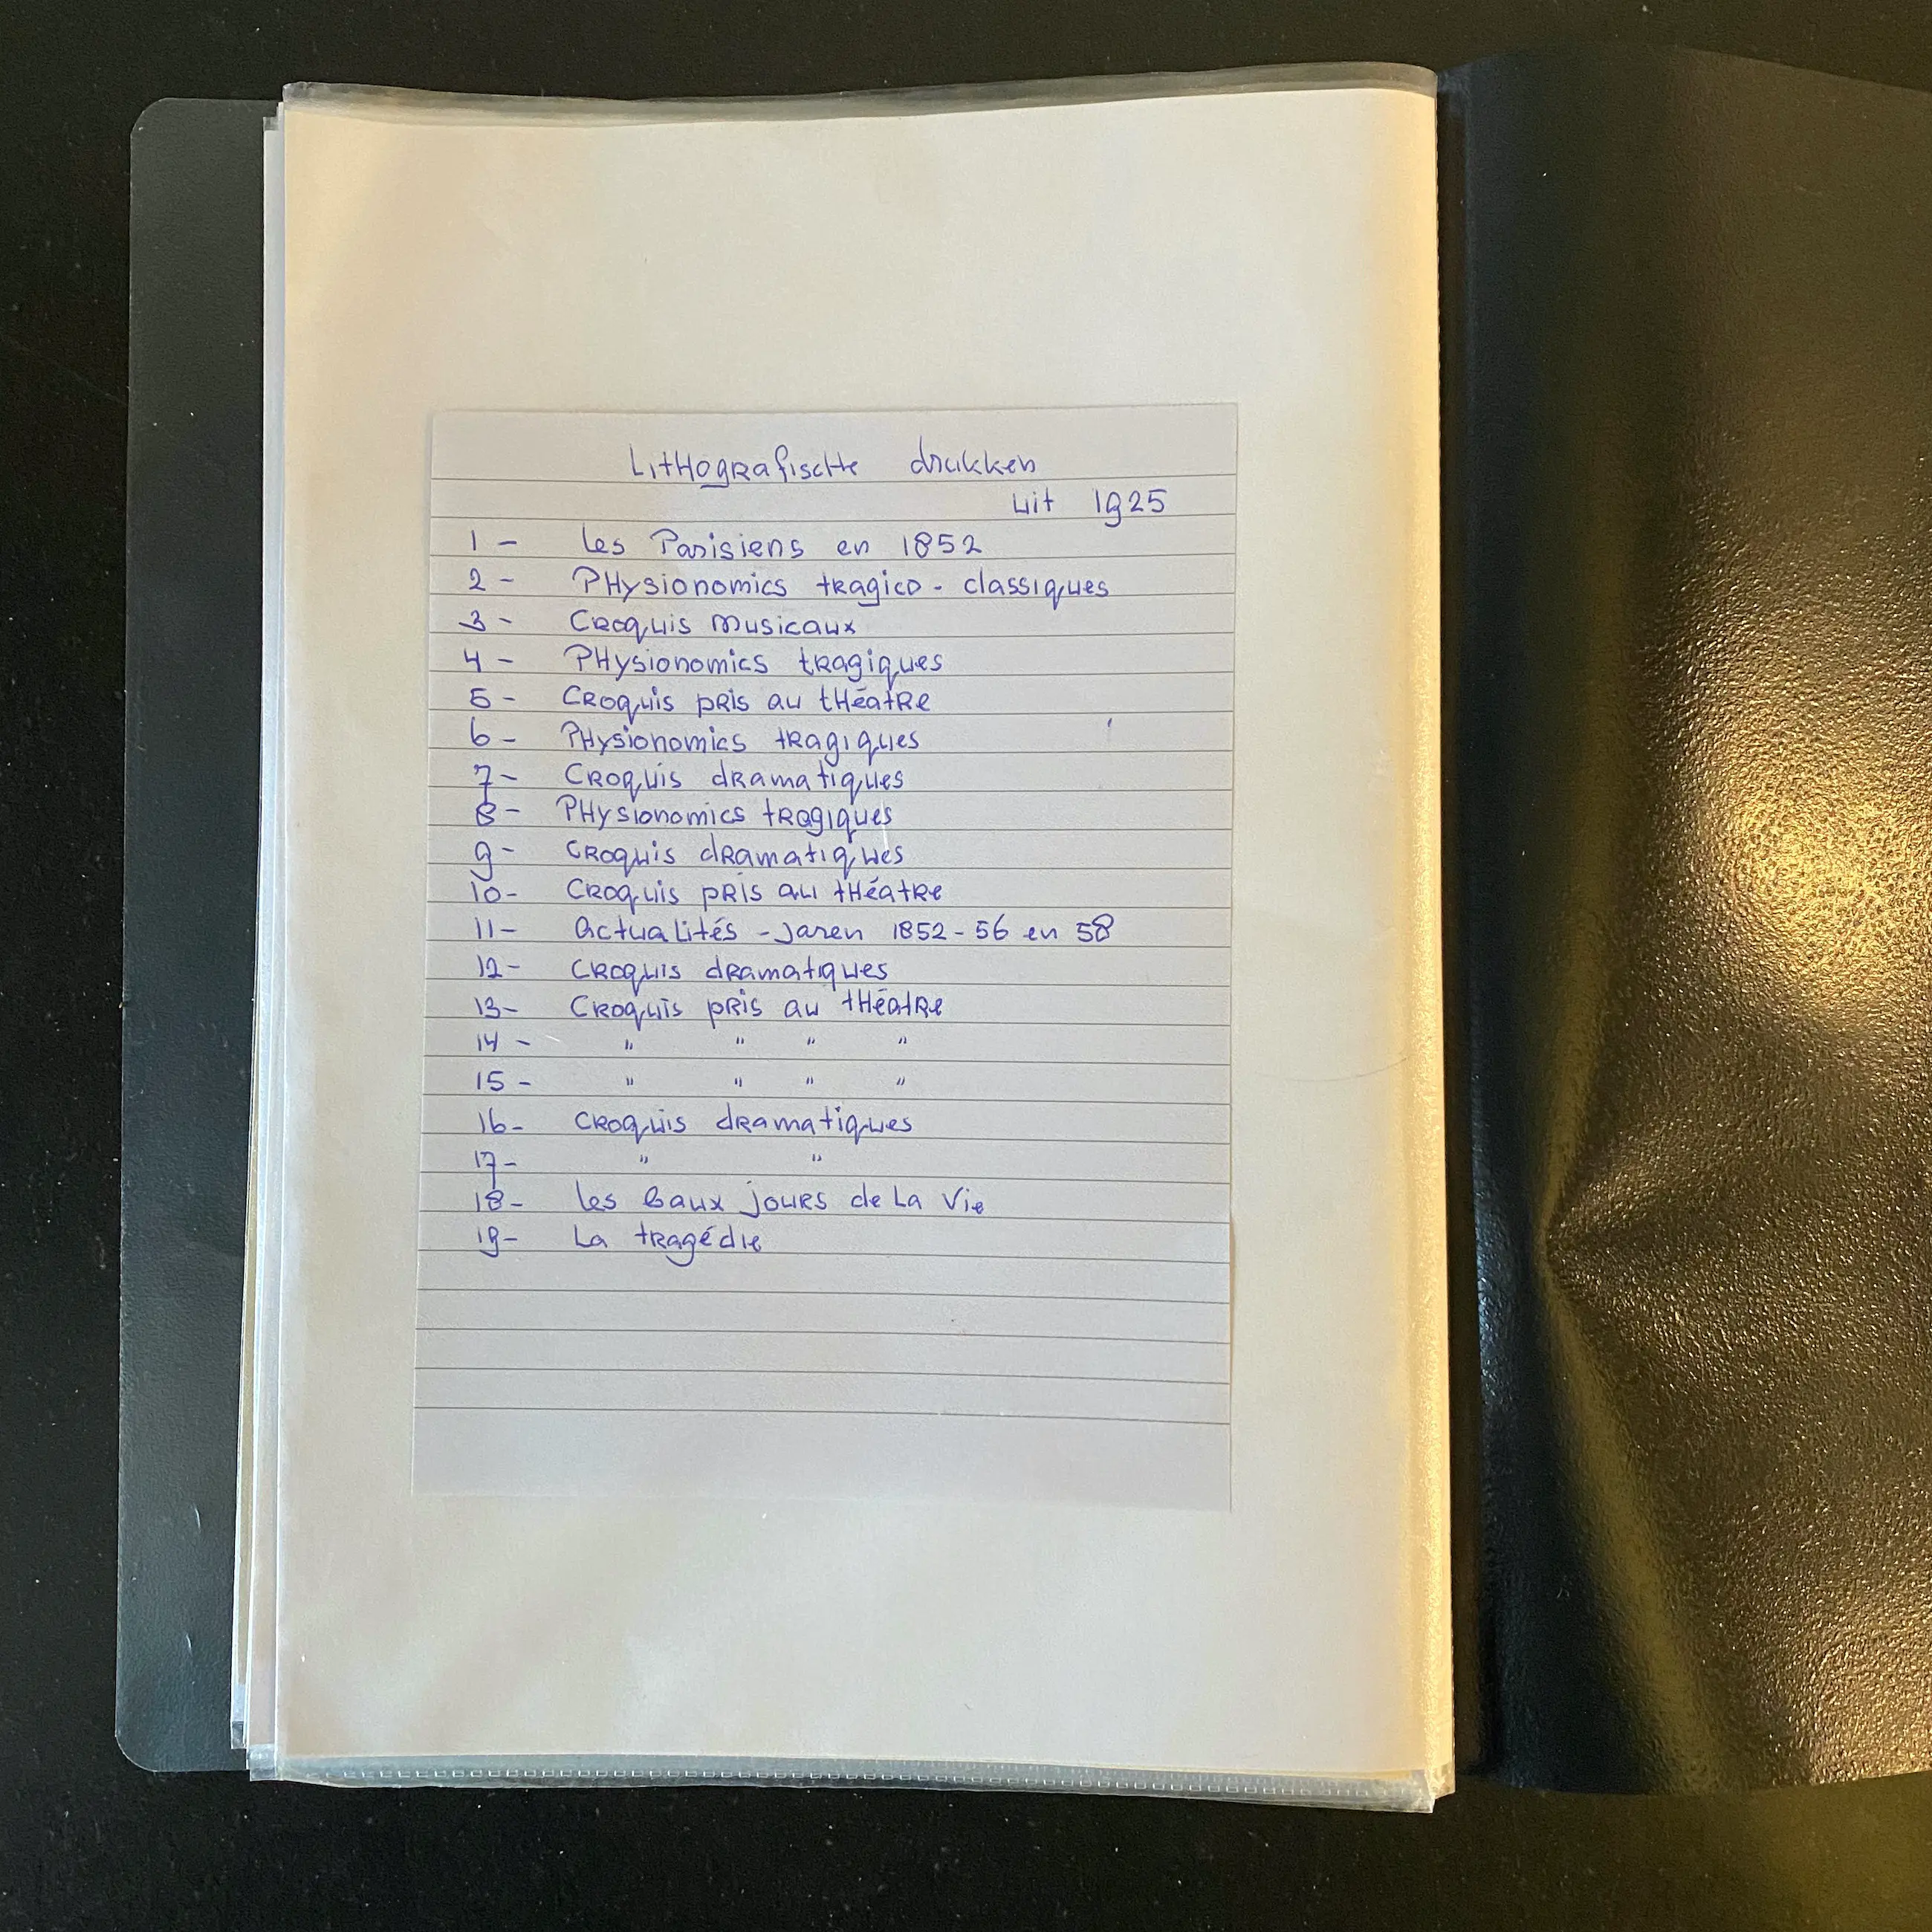 Lithografische drukken
uit 1925
1 - Les Parisiens en 1852
2 - Physionomics tragico - classiques
3 - Croquis musicaux
4 - Physionomics tragiques
5 - Croquis pris au théatre
6 - Physionomics tragiques
7 - Croquis dramatiques
8 - Physionomics tragiques
9 - Croquis dramatiques
10 - Croquis pris au théatre
11 - Actualités - Jaren 1852 - 56 en 58
12 - Croquis dramatiques
13 - Croquis pris au théatre
14 - " " " "
15 - " " " "
16 - Croquis dramatiques
17 - " "
18 - Les Baux jours de La Vie
19 - La tragédie